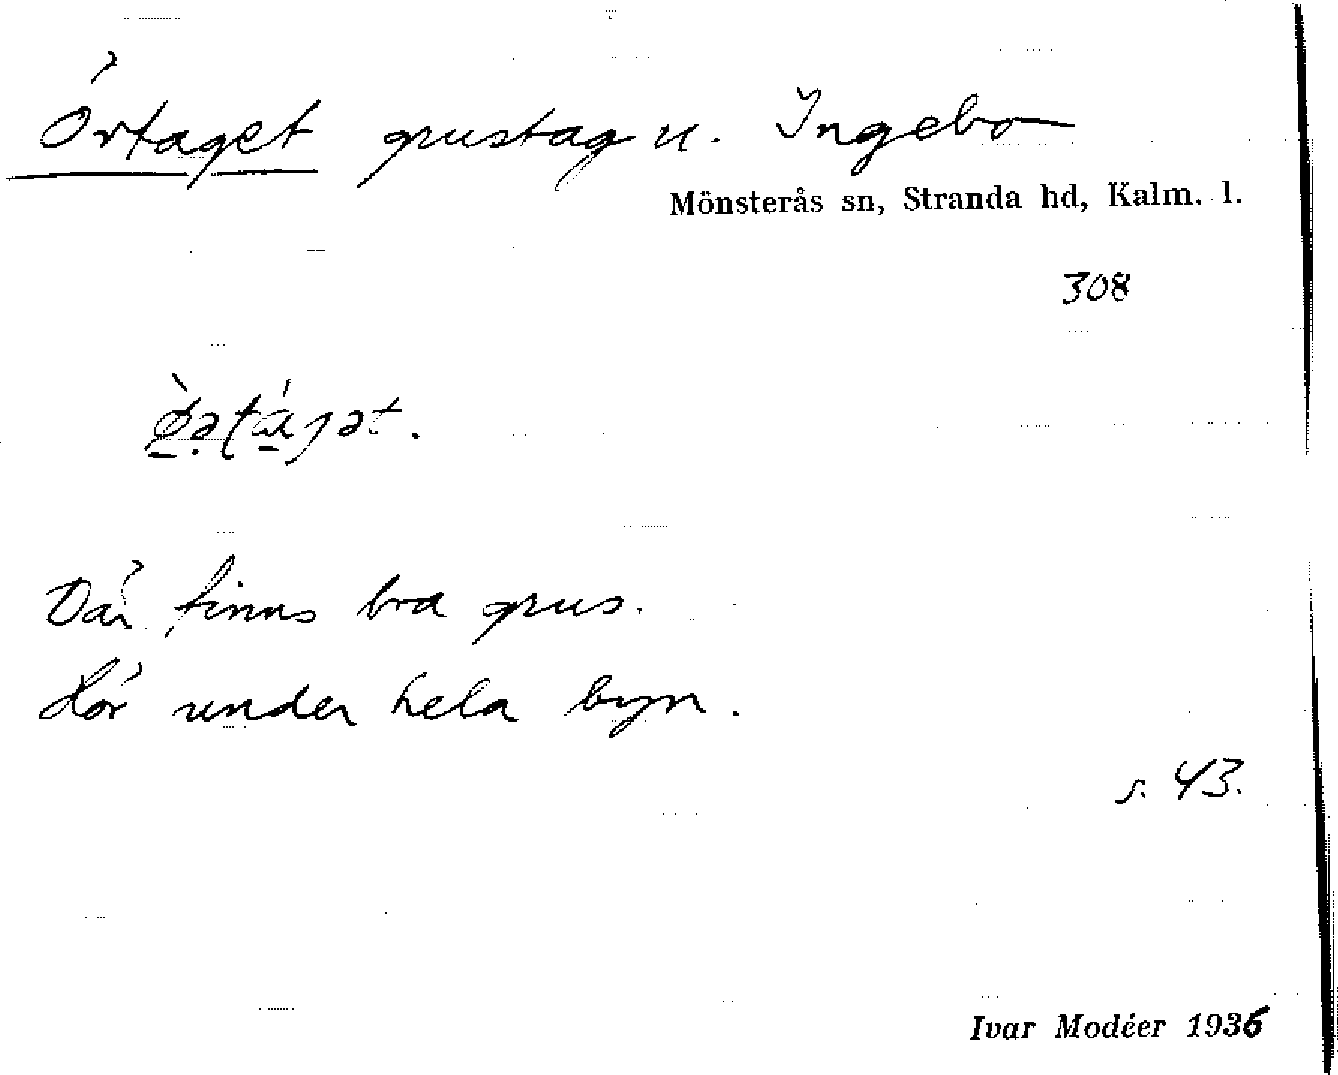 Örtaget grustag u. Ingebo
Mönsterås sn, Stranda hd, Kalm. l.
308
Där finns bra grus.
Hör under hela byn.
s. 43.
Ivar Modéer 1936